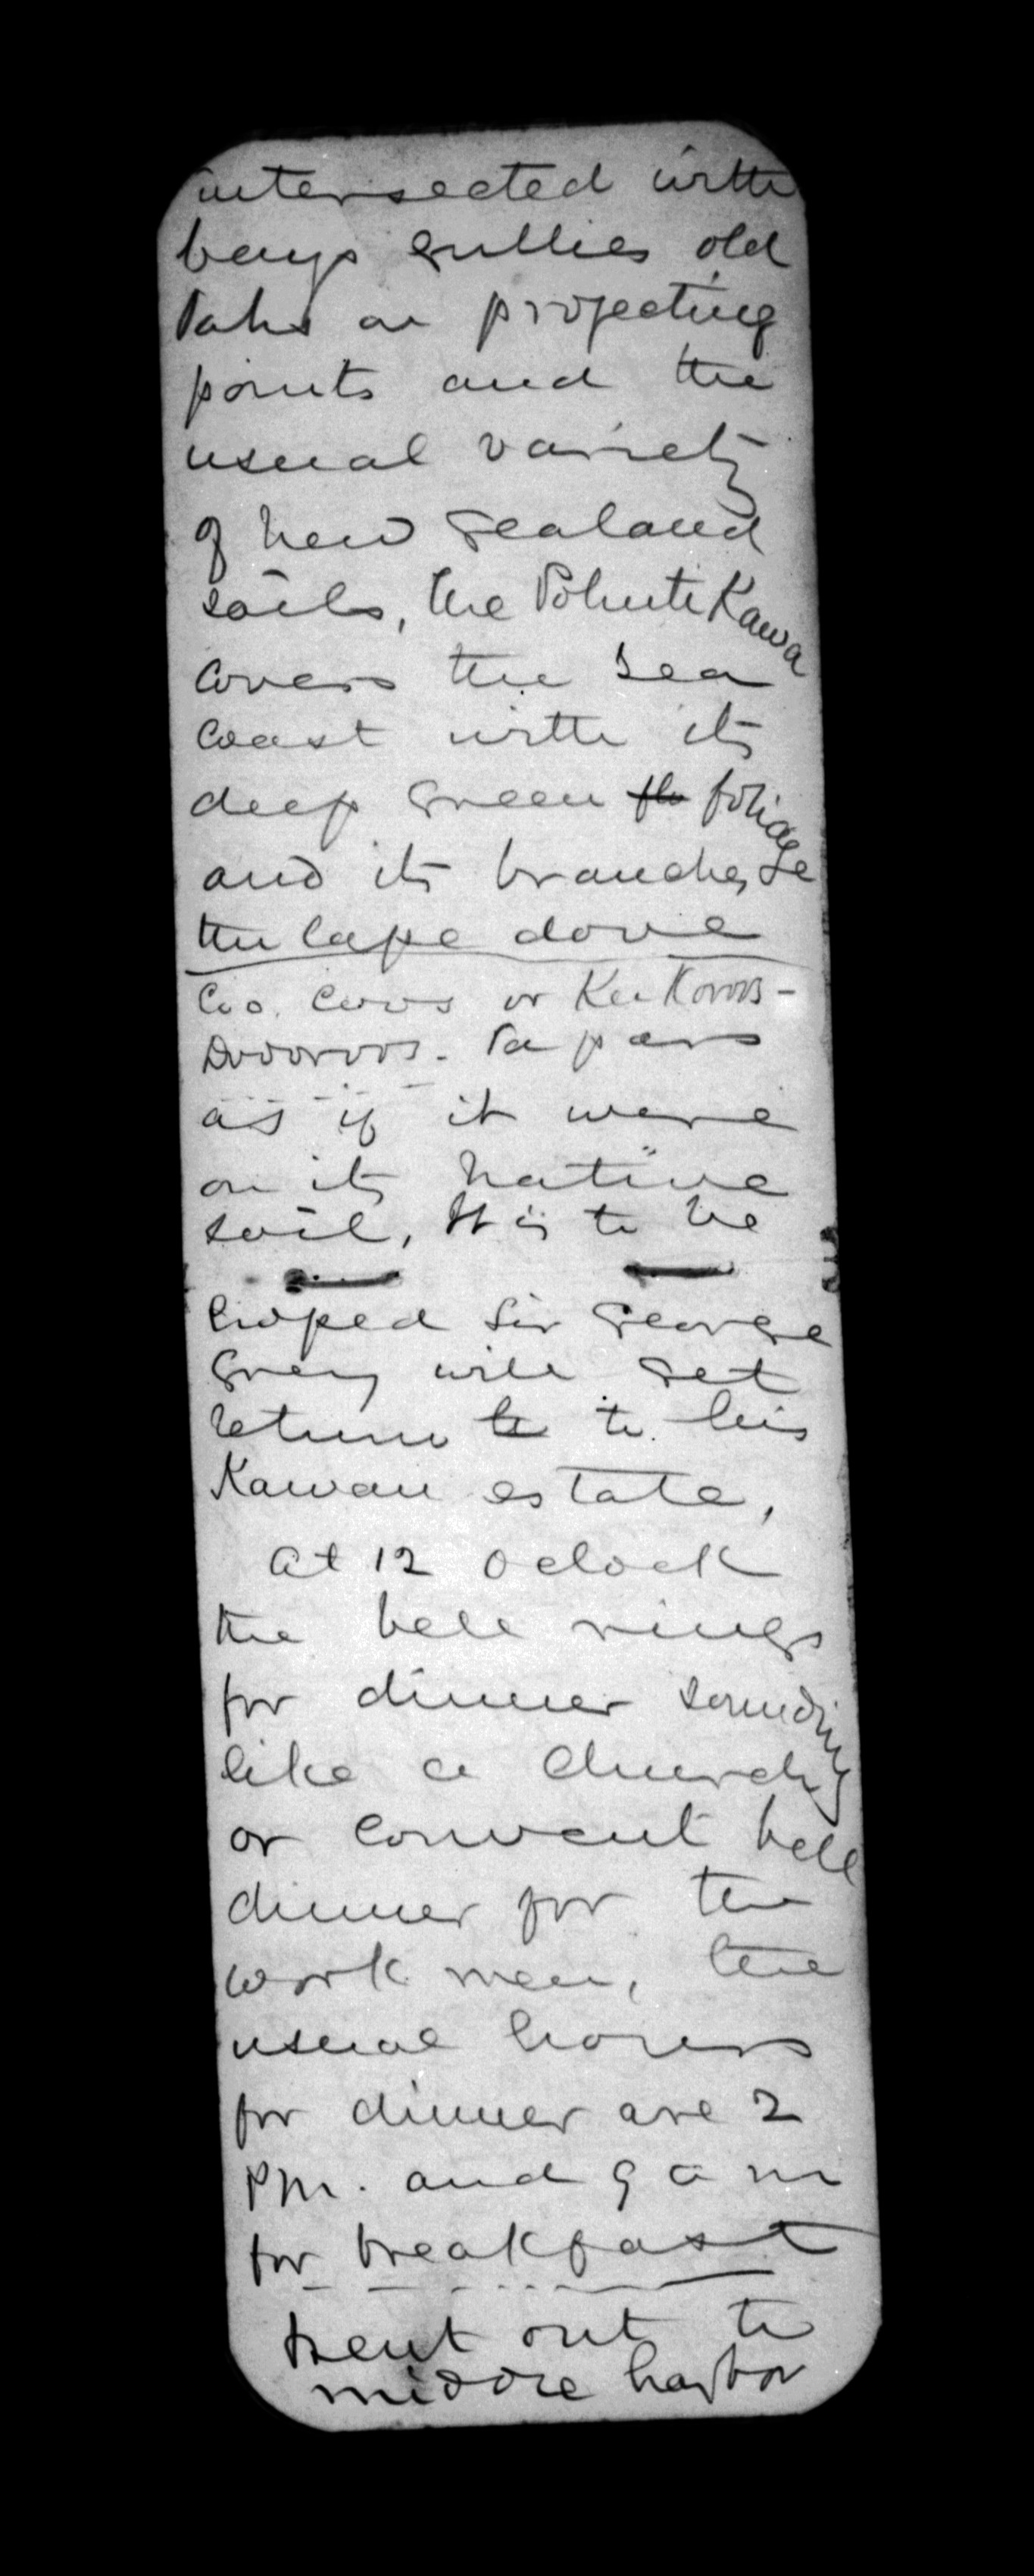 intersected with
bays gullies old
Pahs on projecting
points and the
usual variety
of New Zealand
soils, the PohuteKawa
covers the sea
coast with its
deep green foliage
and its branches
the cape dove
Coo. Coos or
as if it were
on its native
soil, It is to be
hoped Sir George
Grey will get
return to to his
Kawau estate,
at 12 Oclock
the bell rings
for dinner sounding
like a church
or convent bell
dinner for the
work men, the
usual hours
for dinner are 2
PM. and 9 a m
for breakfast
Went out to
middle harbor